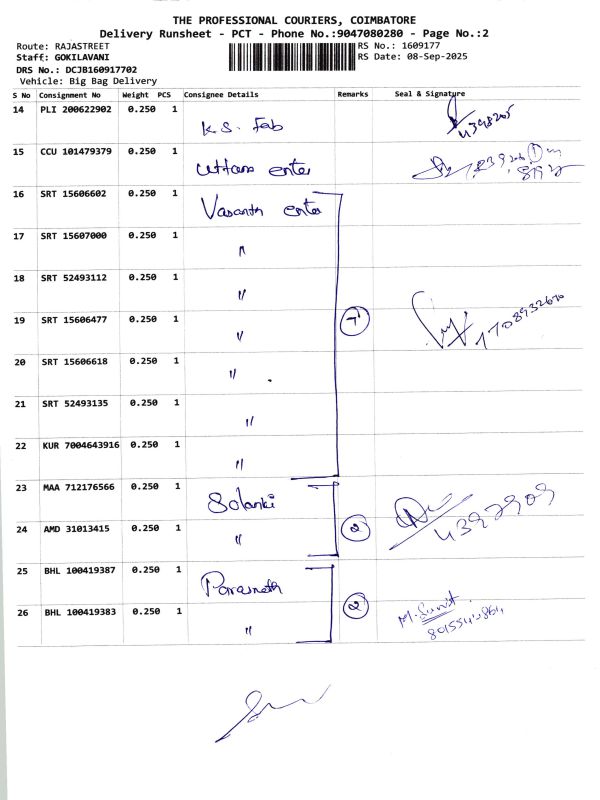 THE PROFESSIONAL COURIERS, COIMBATORE
Delivery Runsheet - PCT - Phone No.:9047080280 - Page No.:2
Route: RAJASTREET RS No.: 1609177
Staff: GOKILAVANI RS Date: 08-Sep-2025
DRS No.: DCJB160917702
Vehicle: Big Bag Delivery
S No Consignment No Weight PCS Consignee Details Remarks Seal & Signature
14 PLI 200622902 0.250 1 K.S. Fab
15 CCU 101479379 0.250 1 Uttam enter
16 SRT 15606602 0.250 1 Vasanth enter
17 SRT 15607000 0.250 1 "
18 SRT 52493112 0.250 1 "
19 SRT 15606477 0.250 1 " 7
20 SRT 15606618 0.250 1 "
21 SRT 52493135 0.250 1 "
22 KUR 7004643916 0.250 1 "
23 MAA 712176566 0.250 1 Solanki
24 AMD 31013415 0.250 1 " 2
25 BHL 100419387 0.250 1 Parasnath
26 BHL 100419383 0.250 1 " 2